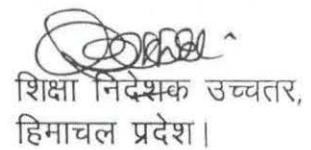 शिक्षा निदेशक उच्चतर,
हिमाचल प्रदेश।